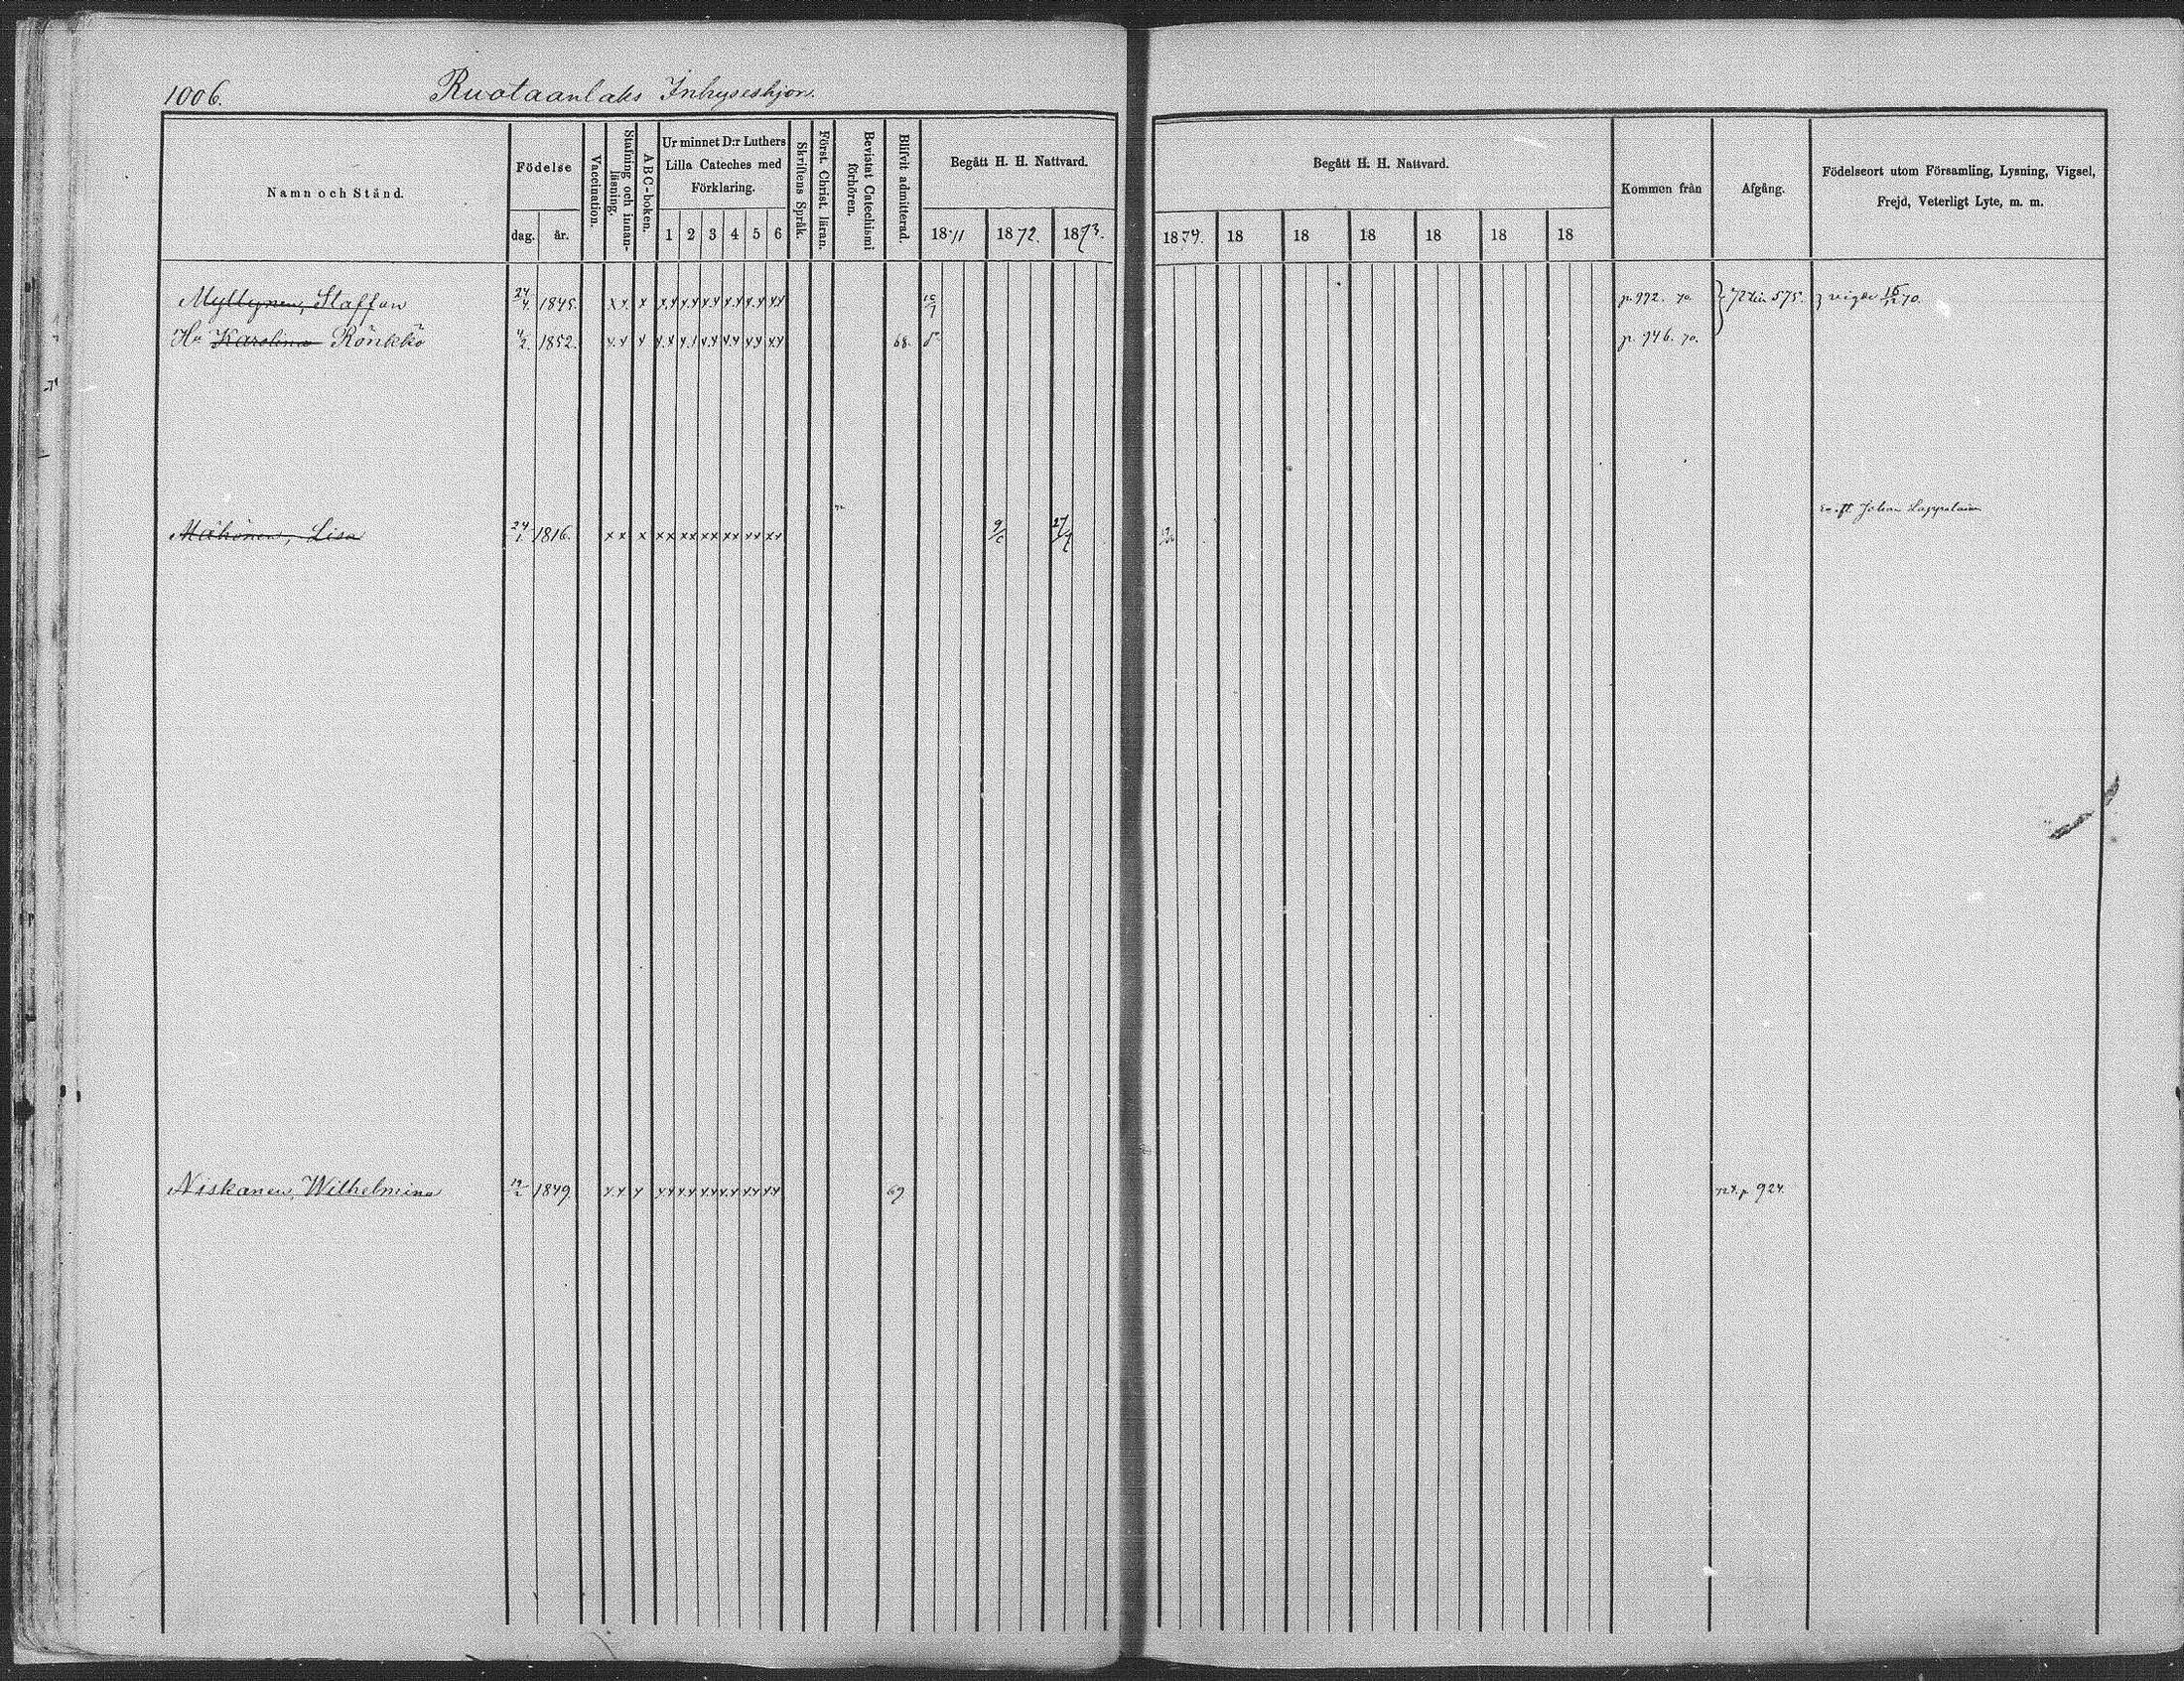 1006. Ruotaanlaks Inhyseshjon.
Namn och Stånd. Födelse dag. år. Vaccination. Stafning och innanläsning. ABC-boken. Ur minnet D:r Luthers Lilla Cateches med Förklaring. 1 2 3 4 5 6 Skriftens Språk. Först. Christ. läran. Bevistat Catechismi förhören. Blifvit admitterad. Begått H. H. Nattvard. 1871 1872. 1873.
Begått H. H. Nattvard. 1874. 18 18 18 18 18 18 Kommen från Afgång. Födelseort utom Församling, Lysning, Vigsel, Frejd, Veterligt Lyte, m. m.
Myllynen, Staffan 24/4. 1845. xx x xx xx xx xx xx xx p. 992. 70. 575. vigde 70.
Hu Karolina Rönkkö 1852. xx x xx xx xx xx xx xx 68. p. 946. 70.
Johan Lappalainen
Mähönen, Lisa 24/1 1816. xx x xx xx xx xx xx xx 27/7
Niskanen, Wilhelmina 1849. xx x xx xx xx xx xx xx 69 p 924.